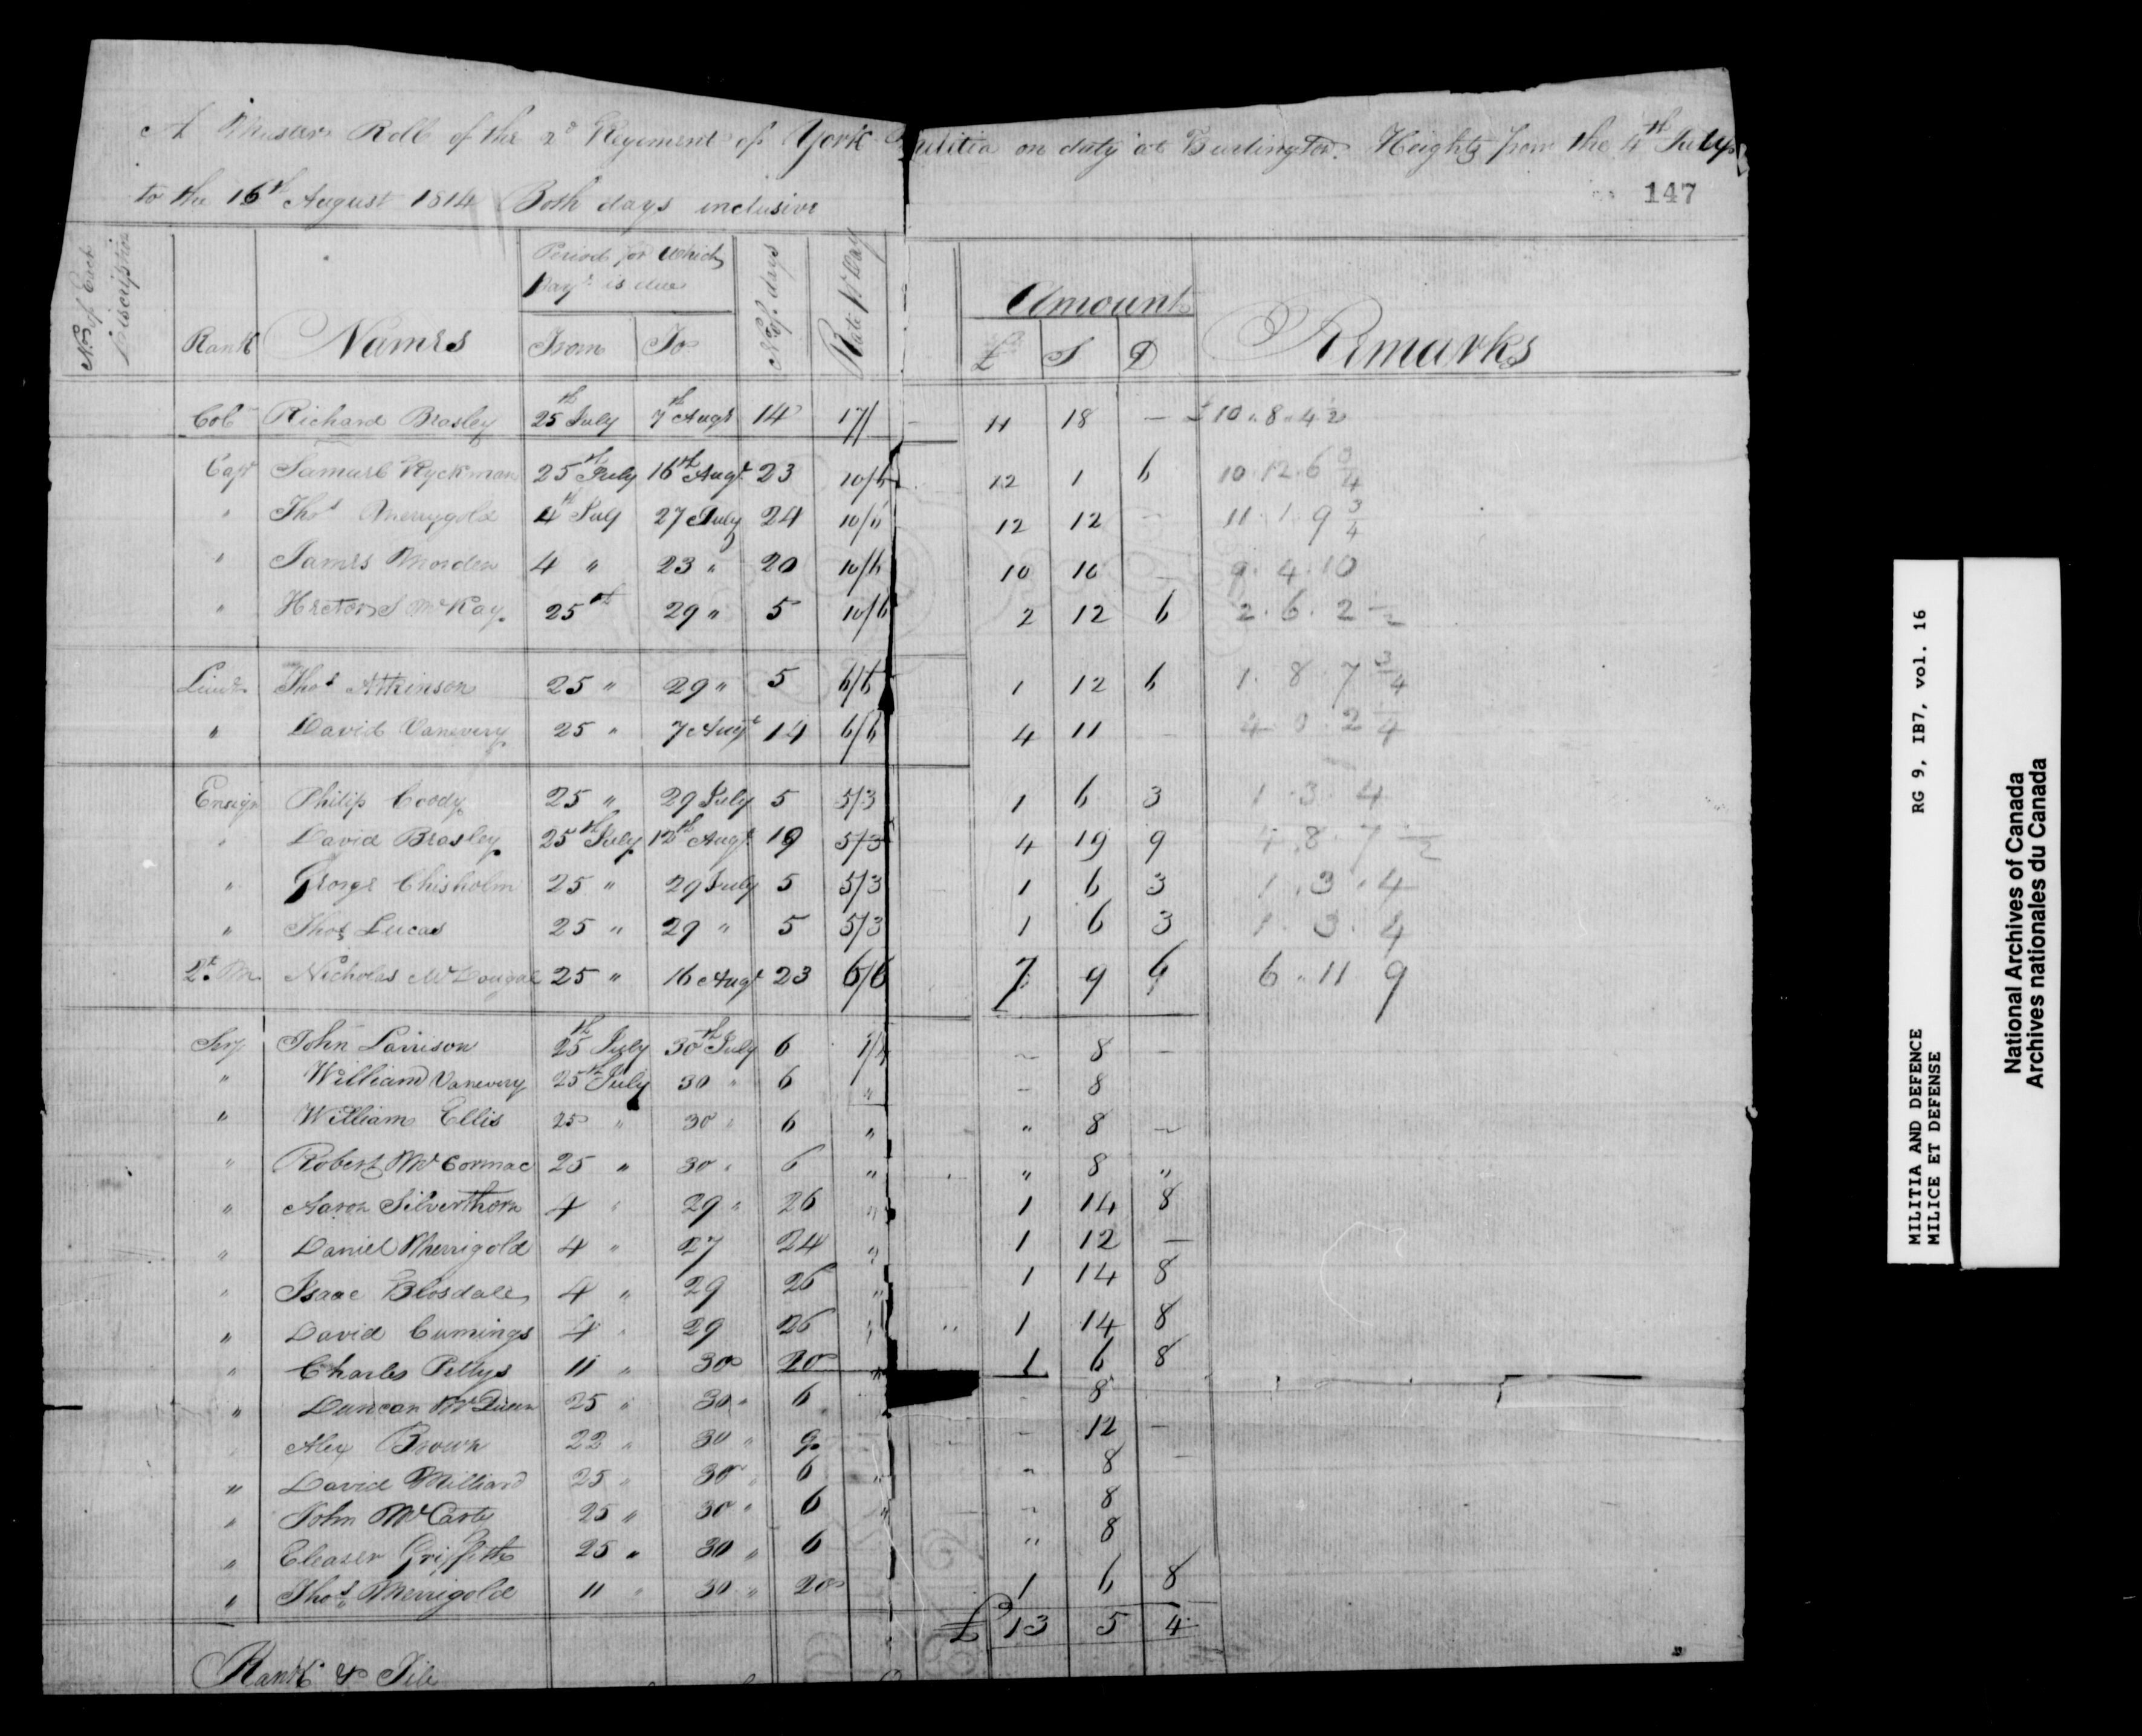 A Muster Roll of the 2d Regiment of York Militia on duty at Burlington Heights from the 4th July
to the 16th August 1814 Both days inclusive
147
No. of Each Discription
Rank Names
Period for Which Pay is due
From To
No of days
Rate pr Day
Amount
£ S D
Remarks
Col Richard Beasley 25th July 7th Augt 14 17/ 11 18 — £10.. 8.. 4 1/2
Capt Samuel Ryckman 25th July 16th Augt 23 10/6 12 1 6 10.12.6 3/4
" Thos Merrygold 4th July 27 July 24 10/6 12 12 — 11.1.9 3/4
" James Morden 4 " 23 " 20 10/6 10 10 — 9.4.10
" Hector S McKay 25th 29 " 5 10/6 2 12 6 2.6.2 1/2
Lieut Thos Attkinson 25 " 29 " 5 6/6 1 12 6 1.8.7 3/4
" David Vanevery 25 " 7 Augt 14 6/6 4 11 — 4.0.2 1/4
Ensign Philip Coody 25 " 29 July 5 5/3 1 6 3 1.3.4
" David Beasley 25th July 12th Augt 19 5/3 4 19 9 4.8.7 1/2
" George Chisholm 25 " 29 July 5 5/3 1 6 3 1.3.4
" Thos Lucas 25 " 29 " 5 5/3 1 6 3 1.3.4
Qr. M. Nicholas McDougal 25 " 16 Augt 23 6/6 7 9 6 6.11 9
Serjt John Larrison 25th July 30th July 6 1/4 — 8 —
" William Vanevery 25th July 30 " 6 " — 8
" William Ellis 25 " 30 " 6 " " 8 —
" Robert McCormac 25 " 30 " 6 " " 8 "
" Aaron Silverthorn 4 " 29 " 26 " 1 14 8
" Daniel Merrigold 4 " 27 24 " 1 12 —
" Isaac Blosdale 4 " 29 26 " 1 14 8
" David Cumings 4 " 29 26 " 1 14 8
" Charles Pettys 11 " 30 20 " 1 6 8
" Duncan McQueen 25 " 30 " 6 - 8
" Alex Brown 22 " 30 " 9 - 12 —
" David Milliard 25 " 30 " 6 " - 8 —
" John McCarty 25 " 30 " 6 " - 8
" Eleazer Griffith 25 " 30 " 6 " 8
" Thos Merrigold 11 " 30 " 20 1 6 8
£ 13 5 4
Rank & File
MILITIA AND DEFENCE RG 9, IB7, vol. 16
MILICE ET DEFENSE
National Archives of Canada
Archives nationales du Canada